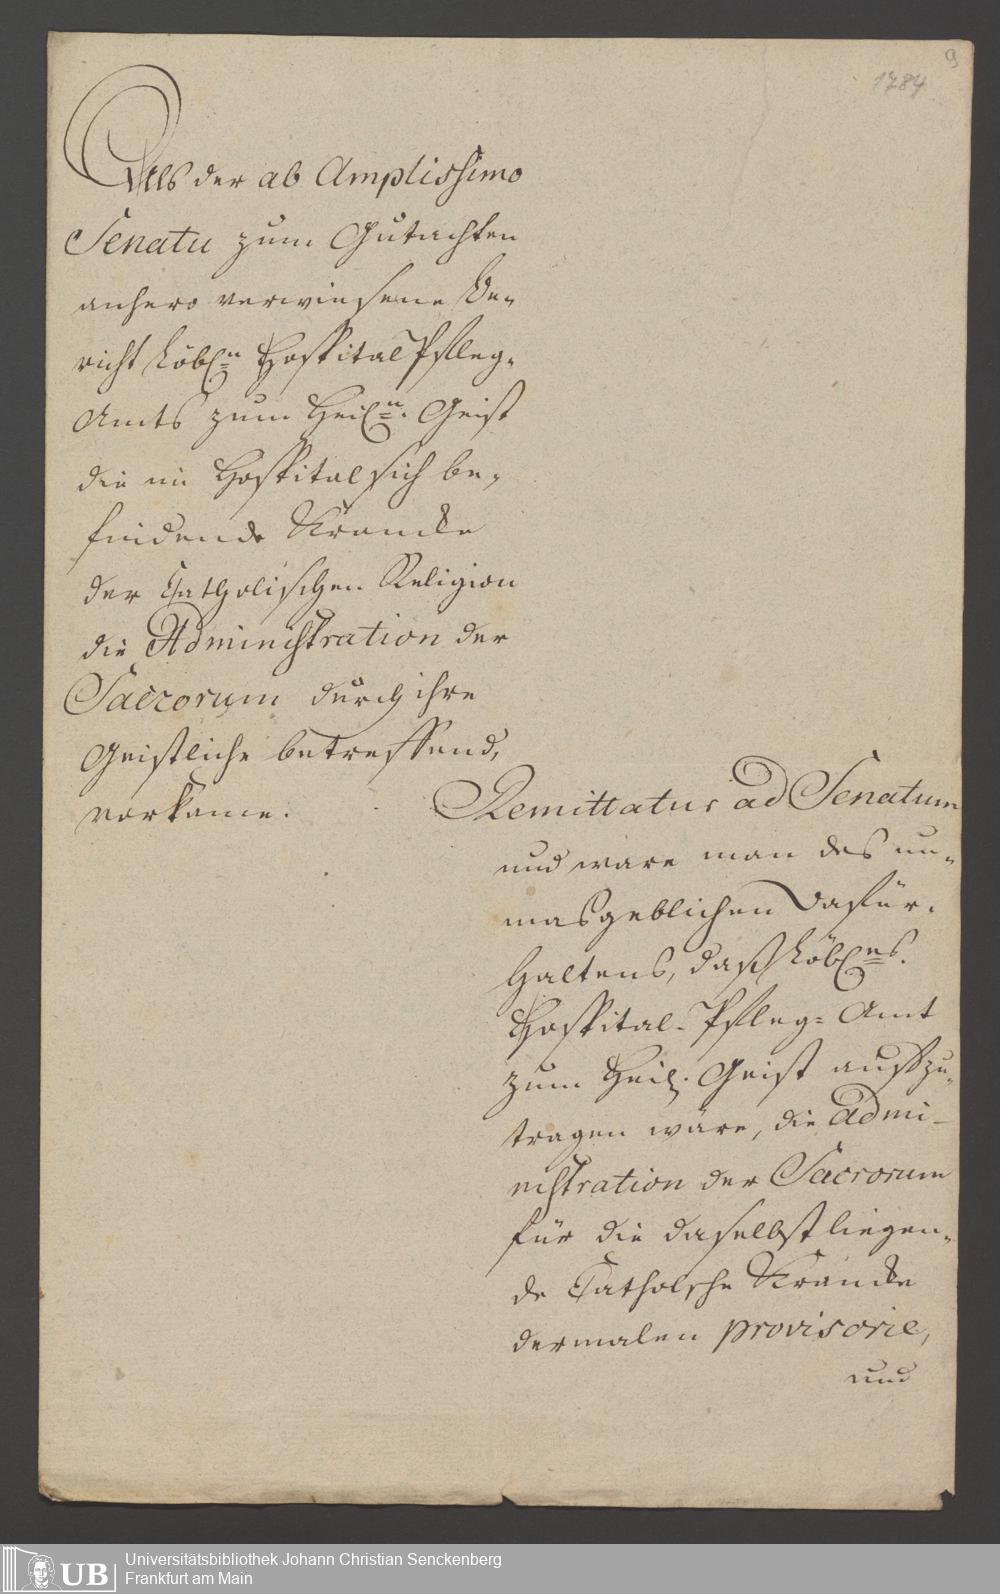 9
1784
Als der ab Amplissimo
Senatu zum Gutachten
anhero verwiesene Be-
richt Löbl.n Hospital Pfleg-
Amts zum Heil.n Geist
die im Hospital sich be-
findende Krancke
der Catholischen Religion
die Administration der
Sacrorum durch ihre
Geistliche betreffend,
vorkame.
Remittatur ad Senatum
und ware man des un-
masgeblichen Dafür-
haltens, daß Löbl.es
Hospital-Pfleg-Amt
zum Heil. Geist aufzu-
tragen wäre, die Admi-
nistration der Sacrorum
für die daselbst liegen-
de Cathol.sche Krancke
dermalen provisorie,
und
UB
Universitätsbibliothek Johann Christian Senckenberg
Frankfurt am Main